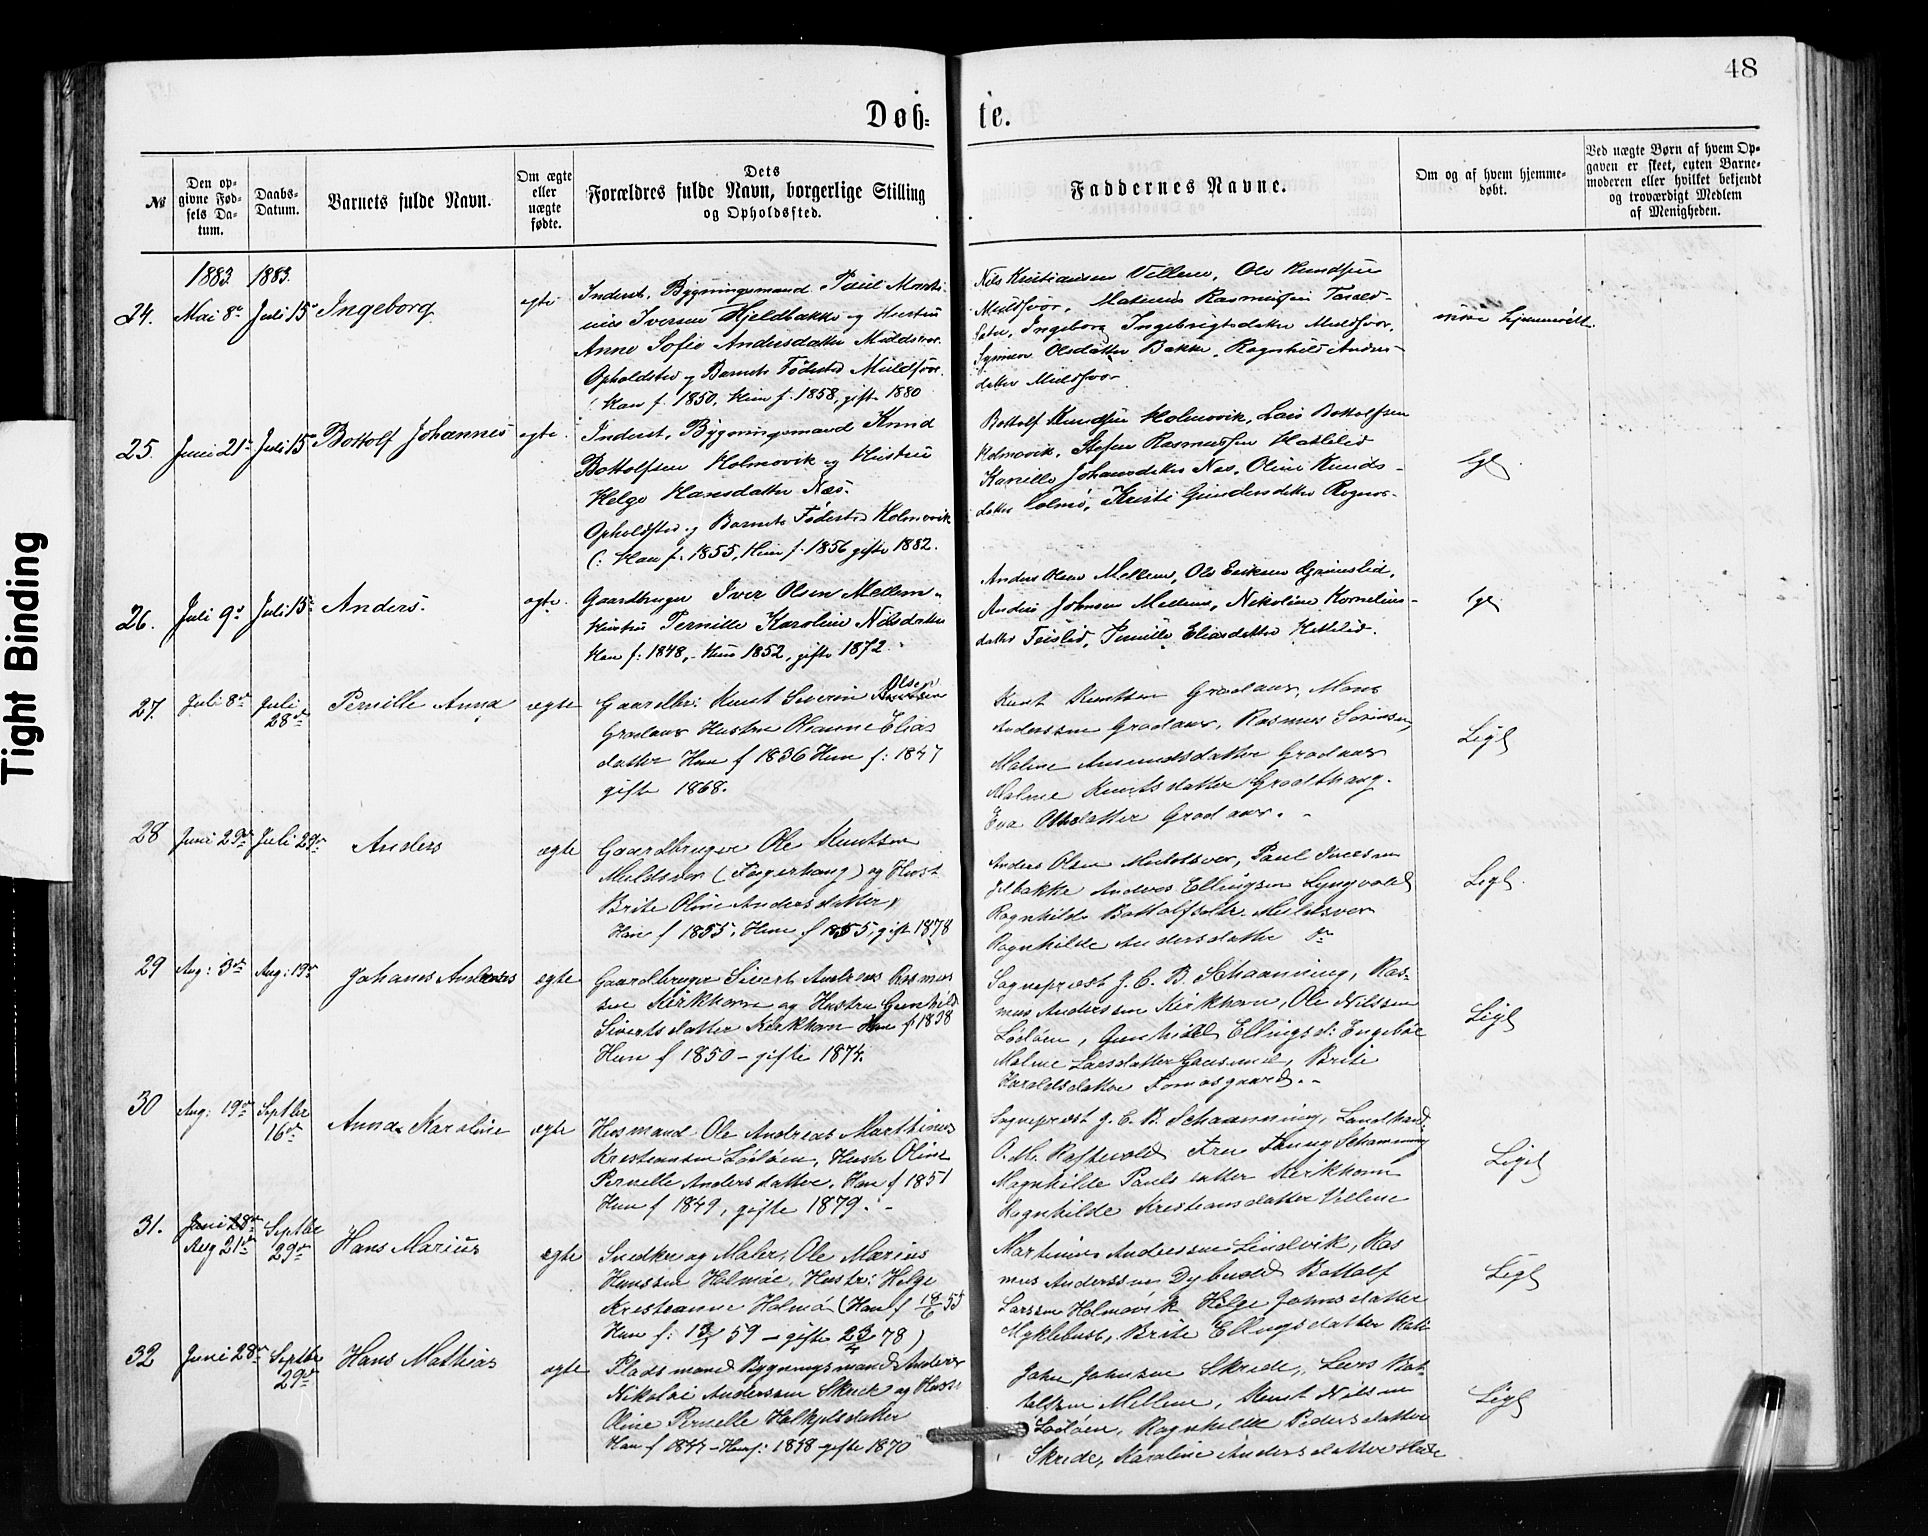 48
Døb=
te.
№
Den op-
givne Fød-
sels Da-
tum.
Daabs-
Datum.
Barnets fulde Navn.
Om ægte
eller
uægte
fødte.
Dets
Forældres fulde Navn, borgerlige Stilling
og Opholdssted.
Faddernes Navne.
Om og af hvem hjemme-
døbt.
Ved uægte Børn af hvem Op-
gaven er skeet, enten Barne-
moderen eller hvilket bekjendt
og troværdigt Medlem
af Menigheden.
1883. 1883.
24. Mai 8de Juli 15de Ingeborg
egte
Inderst, Bygningsmand Paul Marti-
nus Iversen Hjelbakke og Hustru
Anne Sofie Andersdatter Muldsvor
Opholdsted og Barnets Fødested Muldsvor.
(: Han f. 1850, Hun f. 1858, gift 1880
Nils Kristiansen Villem, Ole Knudsen
Muldsvor, Rasmussen
Ingeborg Ingebrigtsdatter Muldsvor,
Olsdatter Bakke, Ragnhild Anders-
datter Muldsvor
25. Juni 21de Juli 15de Bottolf Johannes egte.
Inderst, Bygningsmand Knud
Bottolfsen Holmøvik og Hustru
Helge Hansdatter Næs.
Opholdsted og Barnets Fødested Holmøvik
(: Han f. 1855, Hun f. 1856 gifte 1882.
Bottolf Knudsen Holmøvik, Lars Bottolfsen
Holmøvik, Stefen Rasmussen Hatlelid
Johansdatter Næs, Oline Knuds-
datter Holmø, Kristi Gundersdatter
lgl
26. Juli 9de Juli 15de Anders.
egte.
Gaardbruger Iver Olsen Mellem,
Hustru Pernille Karoline Nilsdatter
Han f: 1848, - Hun 1852, gifte 1872.
Anders Olsen Mellem, Ole Eriksen
Anders Johnsen Mellem, Nikoline Kornelius-
datter Pernille Eliasdatter Hatlelid.
lgl
27. Juli 8de Juli
28de
Pernille Anna ægte
Gaardbr: Knut Severin Olsen
Grodaas Hustru Oleanne Elias
datter Han f 1836 Hun f: 1847
gifte 1868.
Knut Knutsen Grodaas, Mons
Anderssen Grodaas, Rasmus Sørensen,
Malene Amundsdatter Grodaas
Malene Knutsdatter Grodthaug.
Eva Ottosdatter Grodaas. -
Ligl
28 Juni 29de Juli 29de Anders
ægte
Gaardbruger Ole Knutsen
Muldsvor (Fagerhaug) og Hust
Brite Oline Andersdatter,
Han f 1855, Hun f 1855, gift 1878
Anders Olsen Muldsvor, Paul Iversen
Jelbakke Anders Ellingsen Lyngvold
Ragnhilde Bottolfsdtr. Muldsvor
Ragnhilde Andersdatter do
Ligl.
29 Aug: 3de Aug: 19de Johanes Andreas ægte
Gaardbruger Sivert Andreas Rasmus
sen Kirkhorn og Hustru Gunhild
Sivertsdatter Kirkhorn Han f: 1838
Hun f 1850 - gifte 1874.
Sogneprest J. C. B. Schaanning, Ras-
mus Anderssen Kirkhorn, Ole Nilssen
Lødøen, Gunhild Ellingsd: Engebøe
Malene Larsdatter Brite
Haraldsdatter Tomasgaard. -
Ligl
30 Aug: 19de Septbr
16de
Anna Karoline
ægte
Husmand Ole Andreas Marthinus
Kristiansen Lødøen, Hustr Oline
Pernille Andersdatter. Han f 1851
Hun f 1849, gifte 1879. -
Sogneprest J. C. B. Schaanning, Landhand.
O. M. Raftevold Fru Fanny Schaanning
Magnhilde Paulsdatter Kirkhorn
Ragnhilde Kristiansdatter Villem
Ligl
31. Juni 28de
Aug 21de
Septbr
29de
Hans Marius
ægte
Snedker og Maler, Ole Marius
Hanssen Holmøe, Hustr: Helge
Kristianne Holmø (Han f 18/6 55
Hun f: 59 - gifte 78)
Martinus Anderssen Lindvik, Ras
mus Anderssen Bottolf
Larssen Holmøvik Helge Johnsdatter
Myklebust, Brite Ellingsdatter
Ligl
32 Juni 28de Septbr
29de
Hans Mathias
ægte
Pladsmand Bygningsmand Anders
Nikolai Anderssen Skrede og Hustr
Oline Pernelle Helkjelsdatter
Han f 1844 - Hun f: 1848 gifte 1870
John Johnsen Skrede, Lars
Mellem, Knut Nilssen
Lødøen, Ragnhilde Pedersdatter
Skrede, Karoline Andersdatter
Ligl
Tight Binding